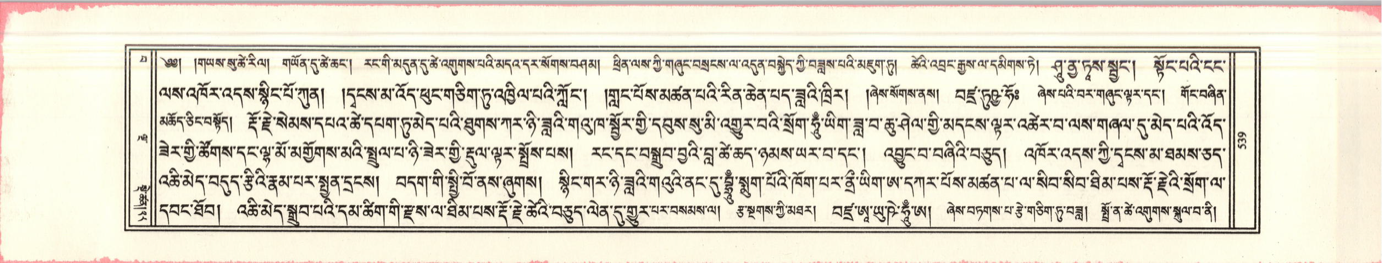 ༄༅། །གཡས་སུ་ཚེ་རིལ། གཡོན་དུ་ཚེ་ཆང་། རང་གི་མདུན་དུ་ཚེ་འགུགས་པའི་མདའ་དར་སོགས་བཤམ། ཕྲིན་ལས་ཀྱི་གཞུང་བསྲངས་ལ་འདུན་བསྐྱེད་ཀྱི་བཟླས་པའི་མཇུག་ཏུ། ཚེའི་འབྲང་རྒྱས་ལ་དམིགས་ཏེ། ཤཱུ་ནྱ་ཏཱས་སྦྱང་། སྟོང་པའི་ངང་
ལས་འཁོར་འདས་སྙིང་པོ་ཀུན། །དྭངས་མ་འོད་ཕུང་གཅིག་ཏུ་འཁྱིལ་པའི་ཀློང་། །གླང་པོས་མཚན་པའི་རིན་ཆེན་པད་ཟླའི་ཁྲིར། །ཞེས་སོགས་ནས། བཛྲ་ཏུཥྱ་ཧོཿ ཞེས་པའི་བར་གཞུང་ལྟར་དང་། གོང་བཞིན་
མཆོད་ཅིང་བསྟོད། རྡོ་རྗེ་སེམས་དཔའ་ཚེ་དཔག་ཏུ་མེད་པའི་ཐུགས་ཀར་ཉི་ཟླའི་གའུ་ཁ་སྦྱོར་གྱི་དབུས་སུ་མི་འགྱུར་བའི་སྲོག་ཧཱུྃ་ཡིག་ཟླ་བ་ཆུ་ཤེལ་གྱི་མདངས་ལྟར་འཚེར་བ་ལས་གཞལ་དུ་མེད་པའི་འོད་
ཟེར་གྱི་ཚོགས་དང་ལྷ་མོ་མགྱོགས་མའི་སྤྲུལ་པ་ཉི་ཟེར་གྱི་རྡུལ་ལྟར་སྤྲོས་པས། རང་དང་བསྒྲུབ་བྱའི་བླ་ཚེ་ཆད་ཉམས་ཡར་བ་དང་། འབྱུང་བ་བཞིའི་བཅུད། འཁོར་འདས་ཀྱི་དྭངས་མ་ཐམས་ཅད་
འཆི་མེད་བདུད་རྩིའི་རྣམ་པར་སྤྱན་དྲངས། བདག་གི་སྤྱི་བོ་ནས་ཞུགས། སྙིང་གར་ཉི་ཟླའི་གའུའི་ནང་དུ་སྨུག་པོའི་ཁོག་པར་ནྲྀ་ཡིག་ཨ་དཀར་པོས་མཚན་པ་ལ་སིབ་སིབ་ཐིམ་པས་རྡོ་རྗེའི་སྲོག་ལ་
དབང་ཐོབ། འཆི་མེད་སྒྲུབ་པའི་དམ་ཚིག་གི་རྫས་ལ་ཐིམ་པས་རྡོ་རྗེ་ཚེའི་བཅུད་ལེན་དུ་གྱུར་པར་བསམས་ལ། རྩ་སྔགས་ཀྱི་མཐར། བཛྲ་ཨཱ་ཡུ་ཥེ་ཧཱུྃ་ཨ། ཞེས་བཏགས་པ་རྩེ་གཅིག་ཏུ་བཟླ། སྤྲོ་ན་ཚེ་འགུགས་སྐུལ་བ་ནི།
539